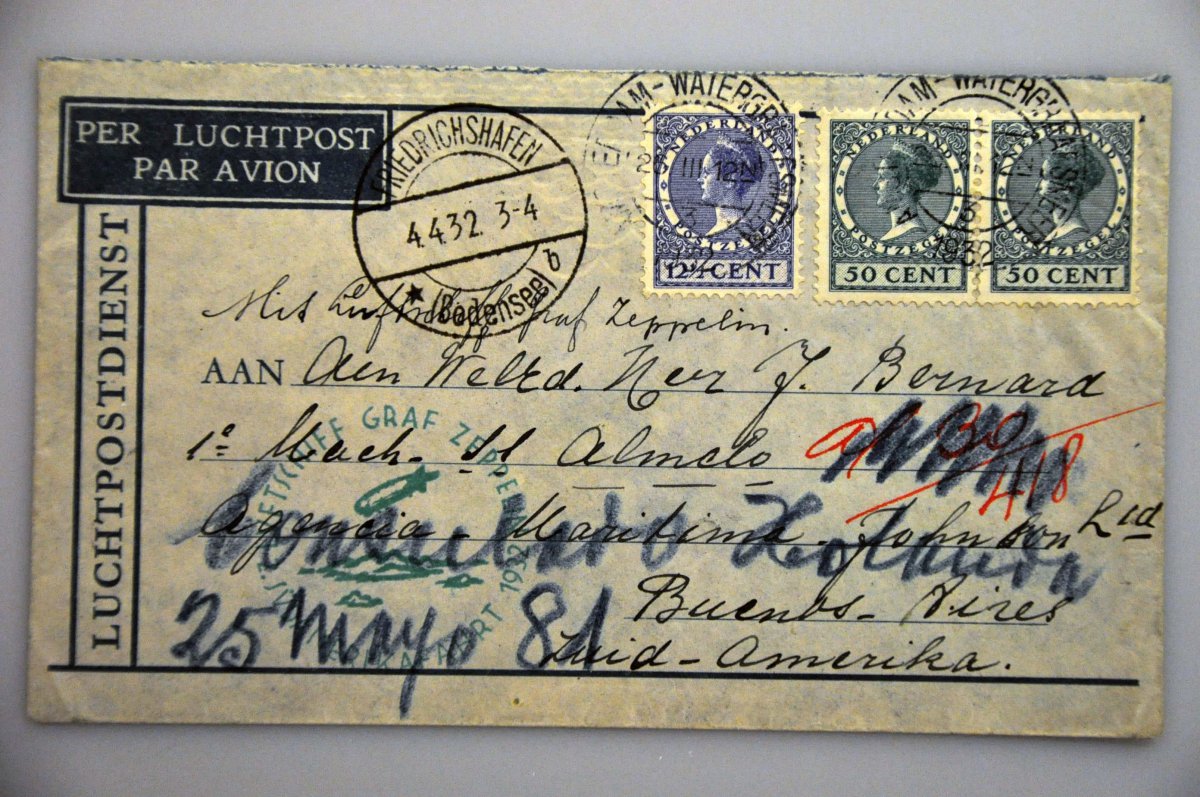 PER LUCHTPOST
PAR AVION
LUCHTPOSTDIENST
FRIEDRICHSHAFEN
4.4.32. 3-4
(Bodensee) b
AM-WATERGR
III 12
AM-WATERGRAAFSMEER
1932
NEDERLAND
POSTZEGEL
12½ CENT
NEDERLAND
POSTZEGEL
50 CENT
NEDERLAND
POSTZEGEL
50 CENT
Mit Luftschiff Graf Zeppelin.
AAN Den Weled. Heer J. Bernard
1e Mach. SS Almelo
30
418
Agencia Maritima Johnson Ltd
Buenos-Aires
Zuid-Amerika.
25 Mayo 81
LUFTSCHIFF GRAF ZEPPELIN
1932